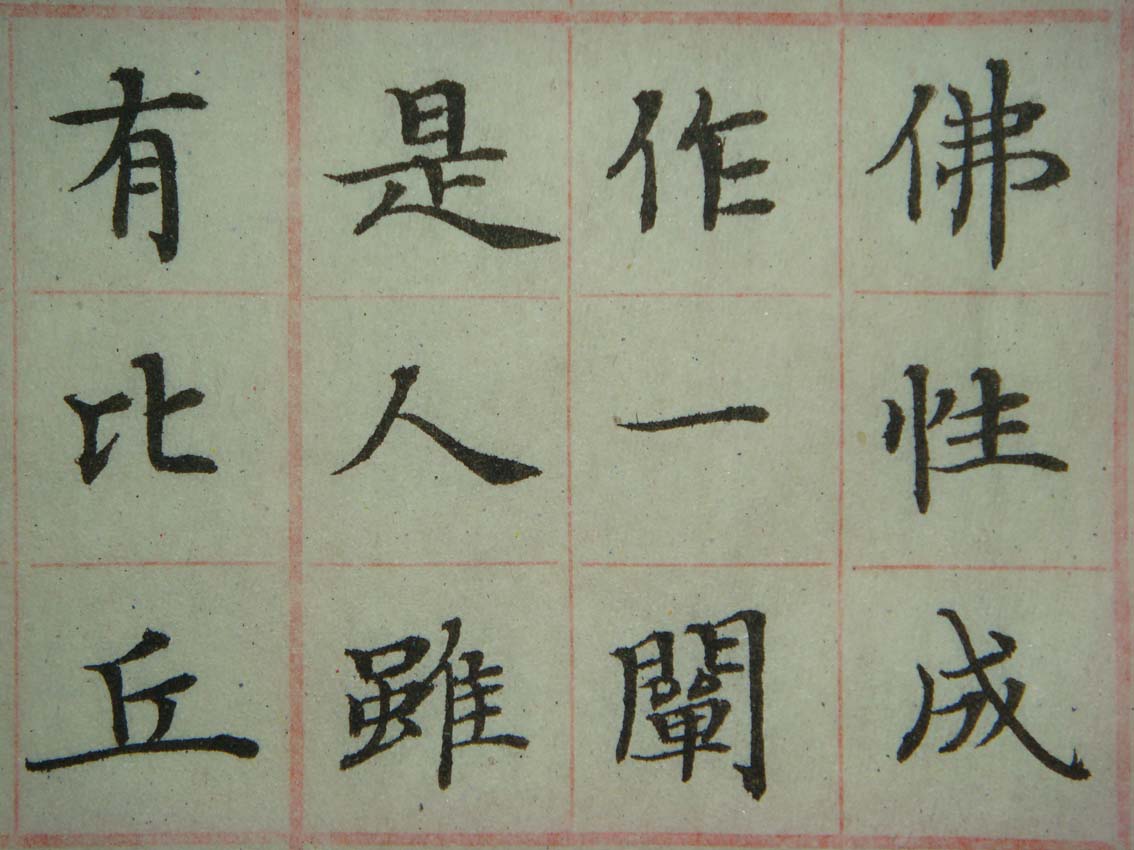 佛性成
作一闡
是人雖
有比丘